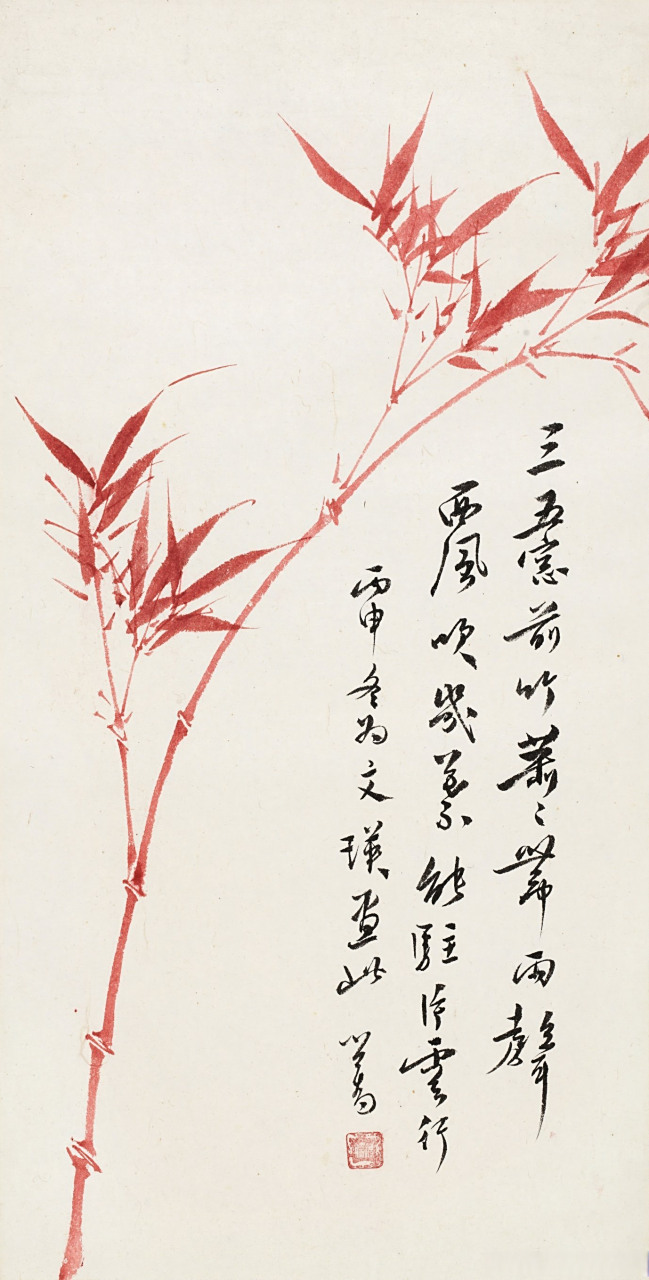 三五窓前竹蕭〻帶雨聲
西風吹幾葉能駐停雲行
丙申冬為文瑛畫此 心畬